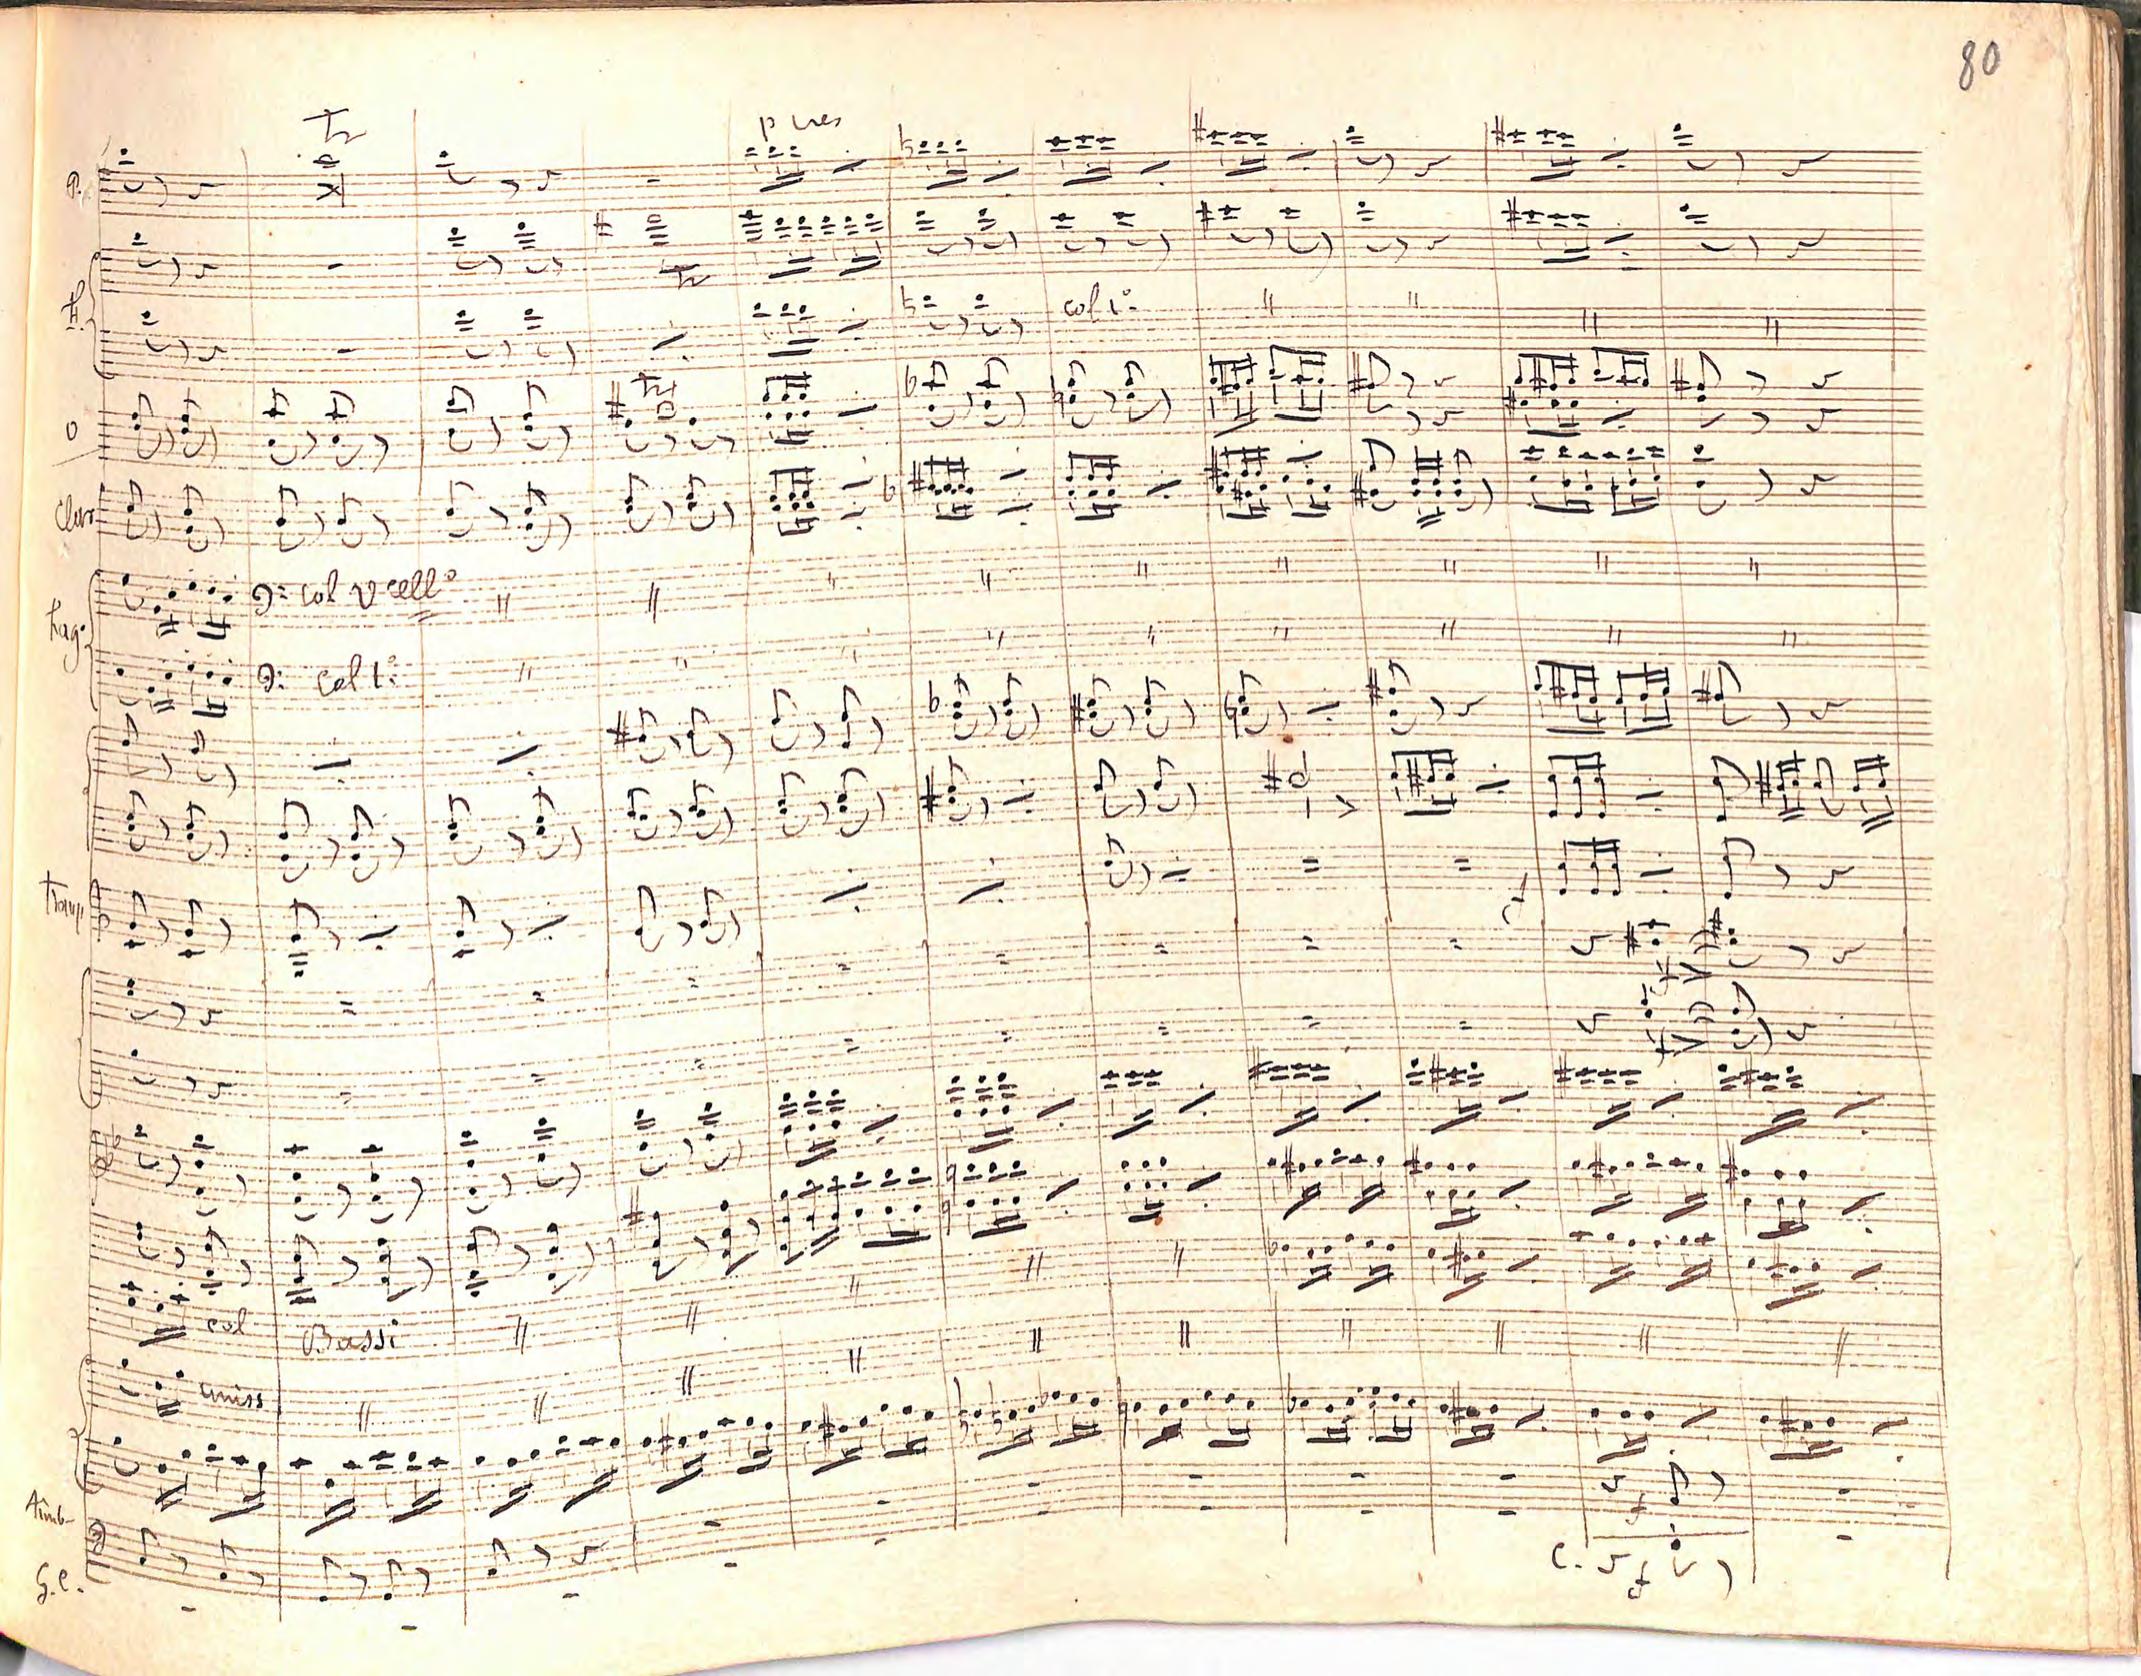 80
tr
p cres
P.
tr
fl.
col 1º
tr
O
Clar
fag.
col Vcello
Col 1º
Tromp
f
f
f
col Bassi
uniss
Timb
f
G.C.
C. f